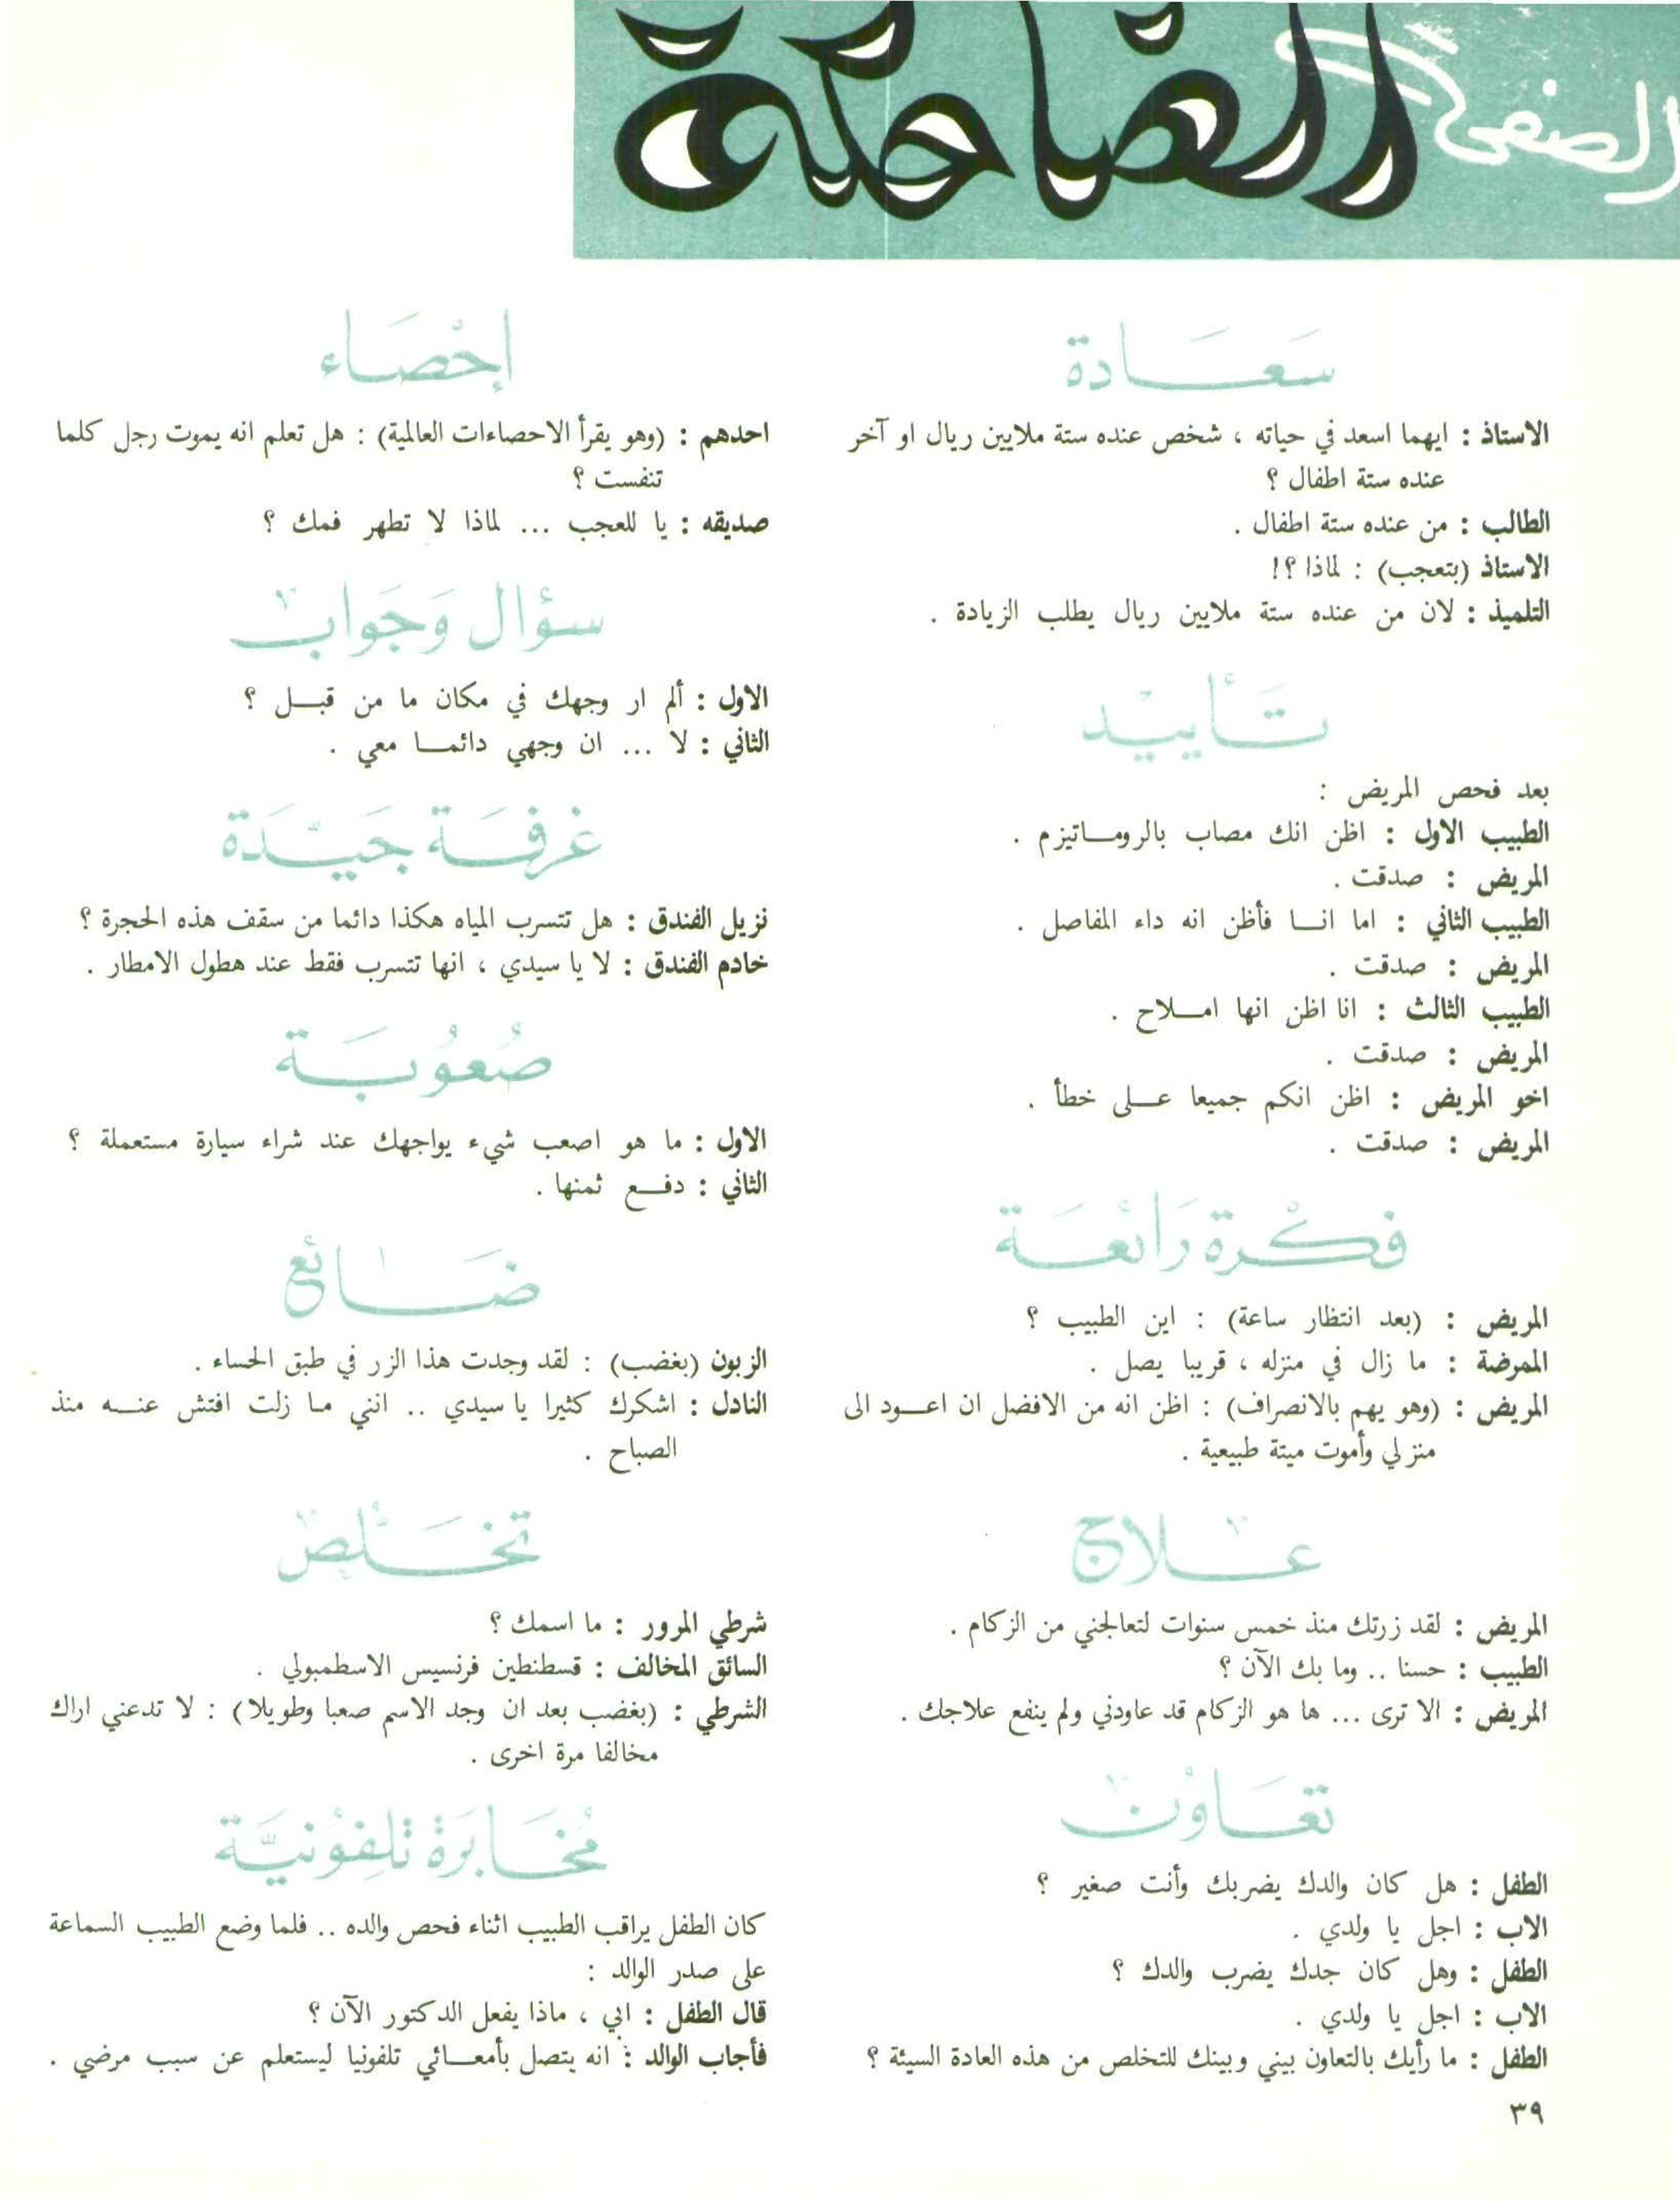 الصفحة الضاحكة
سَعَادة
الاستاذ : ايهما اسعد في حياته ، شخص عنده ستة ملايين ريال او آخر
عنده ستة اطفال ؟
الطالب : من عنده ستة اطفال .
الاستاذ (بتعجب) : لماذا ؟!
التلميذ : لان من عنده ستة ملايين ريال يطلب الزيادة .
تَأييْد
بعد فحص المريض :
الطبيب الاول : اظن انك مصاب بالروماتيزم .
المريض : صدقت .
الطبيب الثاني : اما انا فأظن انه داء المفاصل .
المريض : صدقت .
الطبيب الثالث : انا اظن انها املاح .
المريض : صدقت .
اخو المريض : اظن انكم جميعا على خطأ .
المريض : صدقت .
فكْرة رَائعَة
المريض : (بعد انتظار ساعة) : اين الطبيب ؟
الممرضة : ما زال في منزله ، قريبا يصل .
المريض : (وهو يهم بالانصراف) : اظن انه من الافضل ان اعود الى
منزلي وأموت ميتة طبيعية .
علاج
المريض : لقد زرتك منذ خمس سنوات لتعالجني من الزكام .
الطبيب : حسنا .. وما بك الآن ؟
المريض : الا ترى ... ها هو الزكام قد عاودني ولم ينفع علاجك .
تعَاوُن
الطفل : هل كان والدك يضربك وأنت صغير ؟
الاب : اجل يا ولدي .
الطفل : وهل كان جدك يضرب والدك ؟
الاب : اجل يا ولدي .
الطفل : ما رأيك بالتعاون بيني وبينك للتخلص من هذه العادة السيئة ؟
٣٩
إحْصَاء
احدهم : (وهو يقرأ الاحصاءات العالمية) : هل تعلم انه يموت رجل كلما
تنفست ؟
صديقه : يا للعجب ... لماذا لا تطهر فمك ؟
سؤال وَجَواب
الاول : ألم ار وجهك في مكان ما من قبل ؟
الثاني : لا ... ان وجهي دائما معي .
غرفَة جَيّدَة
نزيل الفندق : هل تتسرب المياه هكذا دائما من سقف هذه الحجرة ؟
خادم الفندق : لا يا سيدي ، انها تتسرب فقط عند هطول الامطار .
صُعُوبَة
الاول : ما هو اصعب شيء يواجهك عند شراء سيارة مستعملة ؟
الثاني : دفع ثمنها .
ضَائع
الزبون (بغضب) : لقد وجدت هذا الزر في طبق الحساء .
النادل : اشكرك كثيرا يا سيدي .. انني ما زلت افتش عنه منذ
الصباح .
تخَلص
شرطي المرور : ما اسمك ؟
السائق المخالف : قسطنطين فرنسيس الاسطمبولي .
الشرطي : (بغضب بعد ان وجد الاسم صعبا وطويلا) : لا تدعني اراك
مخالفا مرة اخرى .
مُخَابَرة تلِفُونيَّة
كان الطفل يراقب الطبيب اثناء فحص والده .. فلما وضع الطبيب السماعة
على صدر الوالد :
قال الطفل : ابي ، ماذا يفعل الدكتور الآن ؟
فأجاب الوالد : انه يتصل بأمعائي تلفونيا ليستعلم عن سبب مرضي .